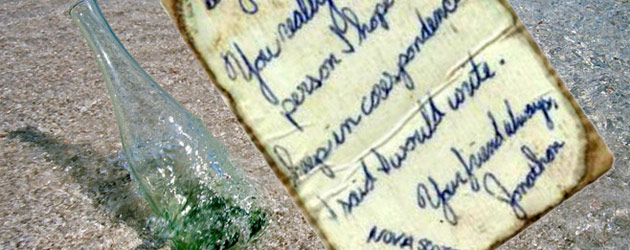 You really
person I hope
keep in coorespondence
I said I would write.
Your friend always,
Jonathon
NOVA